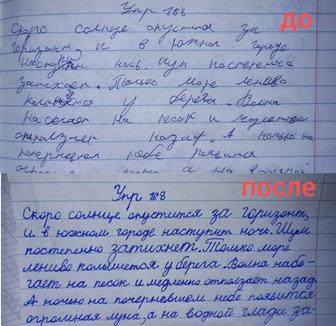 Упр 168
до
Скоро солнце опустится за
горизонт, и в южном городе
наступит ночь. Шум постепенно
затихает. Только море лениво
у берега. Волна
на песок и медленно
отползает назад. А ночью на
почерневшем небе появится
а на водной
после
Упр 168
Скоро солнце опустится за горизонт,
и в южном городе наступит ночь. Шум
постепенно затихнет. Только море
лениво колышется у берега. Волна набе-
гает на песок и медленно отползает назад.
А ночью на почерневшем небе появится
огромная луна, а на водной глади за-